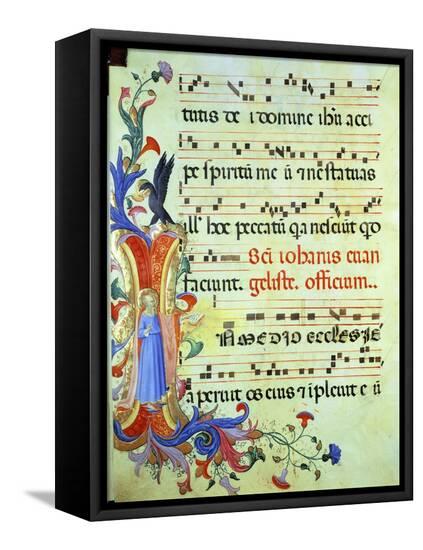 tutis de i domine ihu acci
pe spiritū me ū ⁊ nestatuas
ill' hoc peccatū qa nesciūt qd
Sci iohanis euan
faciunt. geliste. officium..
N MEDIO ECCLESIE
a peruit os eius ⁊ ipleuit e ū